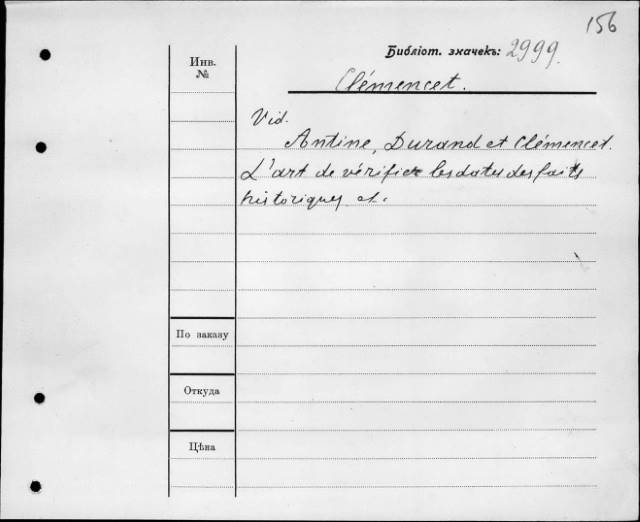 156
Библіот. значекъ: 2999.
Инв.
№
Clémencet.
Vid.
Antine, Durand et Clémencet.
L'art de vérifier les dates des faits
historiques et.
По заказу
Откуда
Цѣна